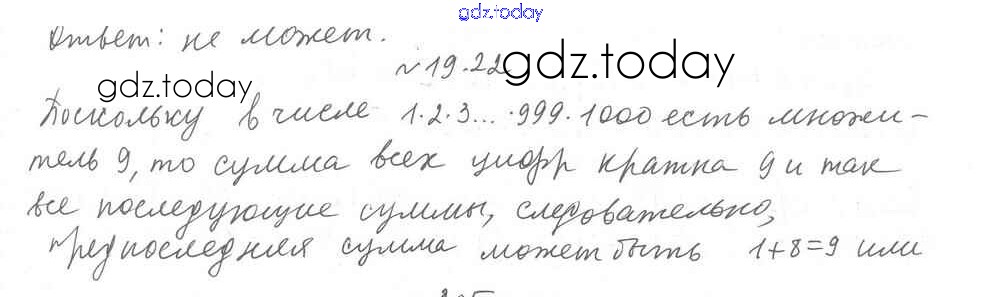 gdz.today
Ответ: не может.
№19.22 gdz.today
gdz.today
Поскольку в числе 1·2·3...·999·1000 есть множи-
тель 9, то сумма всех цифр кратна 9 и так
все последующие суммы, следовательно,
предпоследняя сумма может быть 1+8=9 или